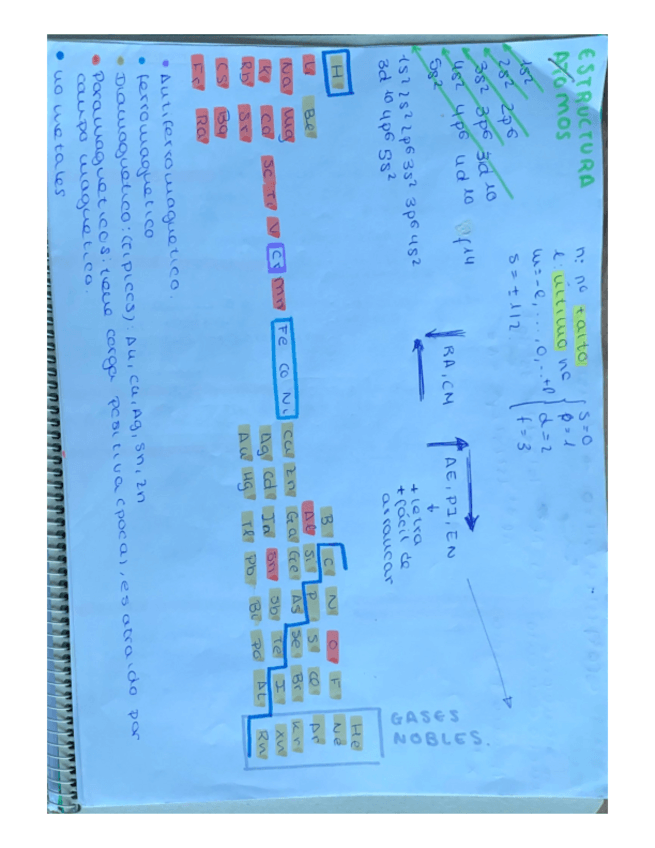 ESTRUCTURA
ATOMOS
1s2
2s2 2p6
3s2 3p6 3d10
4s2 4p6 4d10 4f14
5s2
1s2 2s2 2p6 3s2 3p6 4s2
3d10 4p6 5s2
n: nº
l: último nº { s=0 p=1 d=2 f=3
m=-l,...,0,...+l
s=±1/2
RA, CM
AE, PI, EN
+ letra
+ fácil de
arrancar
GASES
NOBLES.
H He
Li Be B C N O F Ne
Na Mg Al Si P S Ar
K Sc Ti V Cr Mn Fe Co Ni Cu Zn Ga Ge As Se Br Kr
Rb Sr Ag Cd In Sn Sb Te I Xn
Cs Ba Au Hg Tl Pb Bi Po At Rn
Fr Ra
• Antiferromagnetico.
• Ferromagnetico
• Diamagnetico: Au, Cu, Ag, Sn, Zn
• Paramagneticos: tiene carga positiva (poca), es atraido por
campo magnetico.
• no metales